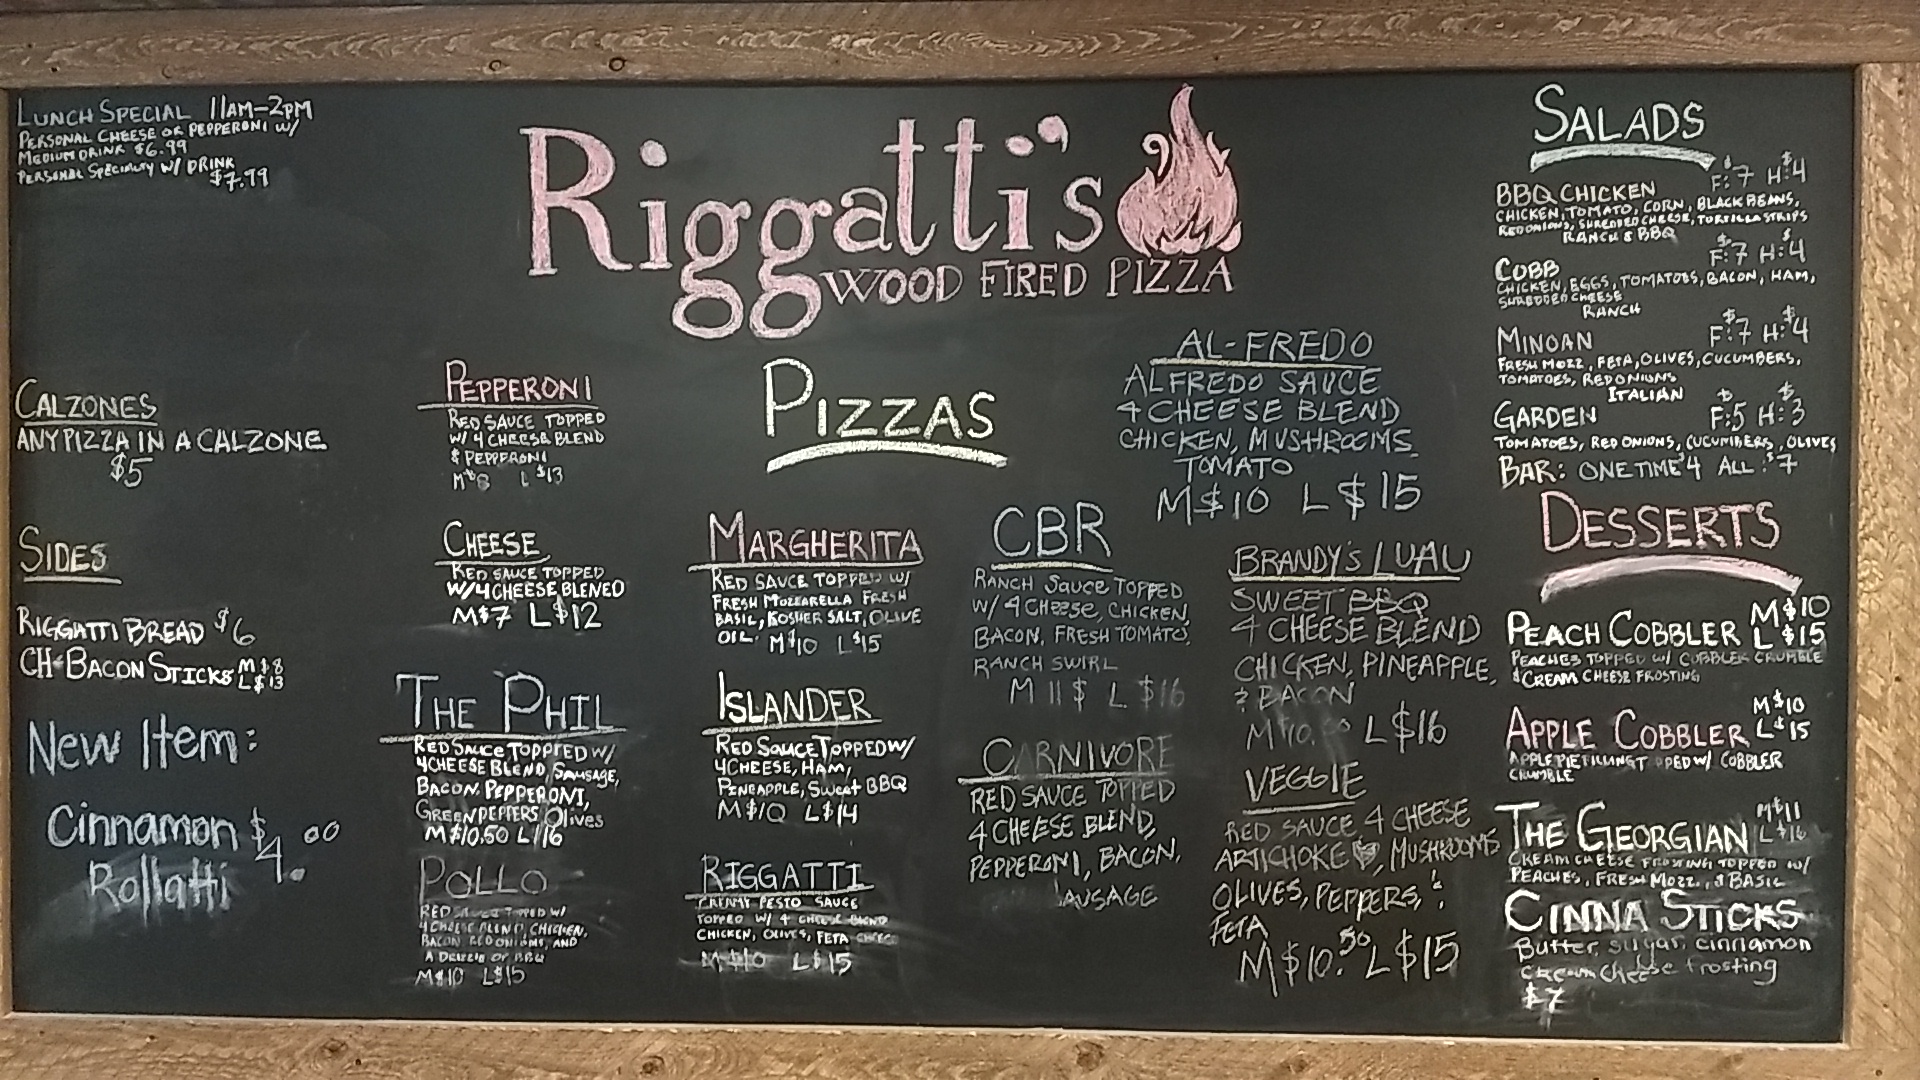 LUNCH SPECIAL 11AM-2PM
PERSONAL CHEESE OR PEPPERONI W/
MEDIUM DRINK $6.99
PERSONAL SPECIALTY W/ DRINK
$7.99
Riggatti's
WOOD FIRED PIZZA
CALZONES
ANY PIZZA IN A CALZONE
$5
SIDES
RIGGATTI BREAD $6
CH-BACON STICKS M $8
L $13
New Item:
Cinnamon $4.00
Rollatti
PIZZAS
PEPPERONI
RED SAUCE TOPPED
W/ 4 CHEESE BLEND
& PEPPERONI
M $8 L $13
CHEESE
RED SAUCE TOPPED
W/4 CHEESE BLENED
M$7 L$12
THE PHIL
RED SAUCE TOPPED W/
4 CHEESE BLEND, SAUSAGE,
BACON, PEPPERONI,
GREEN PEPPERS, Olives
M$10.50 L/16
POLLO
RED SAUCE TOPPED W/
4 CHEESE BLEND, CHICKEN,
BACON, RED ONIONS, AND
A DRIZZLE OF BBQ
M$10 L$15
MARGHERITA
RED SAUCE TOPPED W/
FRESH MOZZARELLA FRESH
BASIL, KOSHER SALT, OLIVE
OIL. M$10 L$15
ISLANDER
RED SAUCE TOPPED W/
4CHEESE, HAM,
PINEAPPLE, Sweet BBQ
M$10 L$14
RIGGATTI
CREAMY PESTO SAUCE
TOPPED W/ 4 CHEESE BLEND
CHICKEN, OLIVES, FETA CHEESE
M$10 L$15
CBR
RANCH SAUCE TOPPED
W/ 4 CHEESE, CHICKEN,
BACON, FRESH TOMATO,
RANCH SWIRL
M 11$ L $16
CARNIVORE
RED SAUCE TOPPED
4 CHEESE BLEND,
PEPPERONI, BACON,
AUSAGE
AL-FREDO
ALFREDO SAUCE
4 CHEESE BLEND
CHICKEN, MUSHROOMS
TOMATO
M$10 L$15
BRANDY'S LUAU
SWEET BBQ
4 CHEESE BLEND
CHICKEN, PINEAPPLE,
& BACON
M$10.50 L$16
VEGGIE
RED SAUCE 4 CHEESE
ARTICHOKE ♥, MUSHROOMS
OLIVES, PEPPERS, &
FETA
M$10.50 L$15
SALADS
F:$7 H:$4
BBQ CHICKEN
CHICKEN, TOMATO, CORN, BLACK BEANS,
RED ONIONS, SHREDDED CHEESE, TORTILLA STRIPS
RANCH & BBQ
COBB F:$7 H:$4
CHICKEN, EGGS, TOMATOES, BACON, HAM,
SHREDDED CHEESE
RANCH
MINOAN F:$7 H:$4
FRESH MOZZ, FETA, OLIVES, CUCUMBERS,
TOMATOES, RED ONIONS
ITALIAN
GARDEN F:$5 H:$3
TOMATOES, RED ONIONS, CUCUMBERS, OLIVES
BAR: ONE TIME $4 ALL: $7
DESSERTS
PEACH COBBLER M$10
L $15
PEACHES TOPPED W/ COBBLER CRUMBLE
& CREAM CHEESE FROSTING
APPLE COBBLER M$10
L $15
APPLE PIE FILLING T PPED W/ COBBLER
CRUMBLE
THE GEORGIAN M$11
L $16
CREAM CHEESE FROSTING TOPPED W/
PEACHES, FRESH MOZZ, & BASIL
CINNA STICKS
Butter, sugar, cinnamon
cream cheese frosting
$7